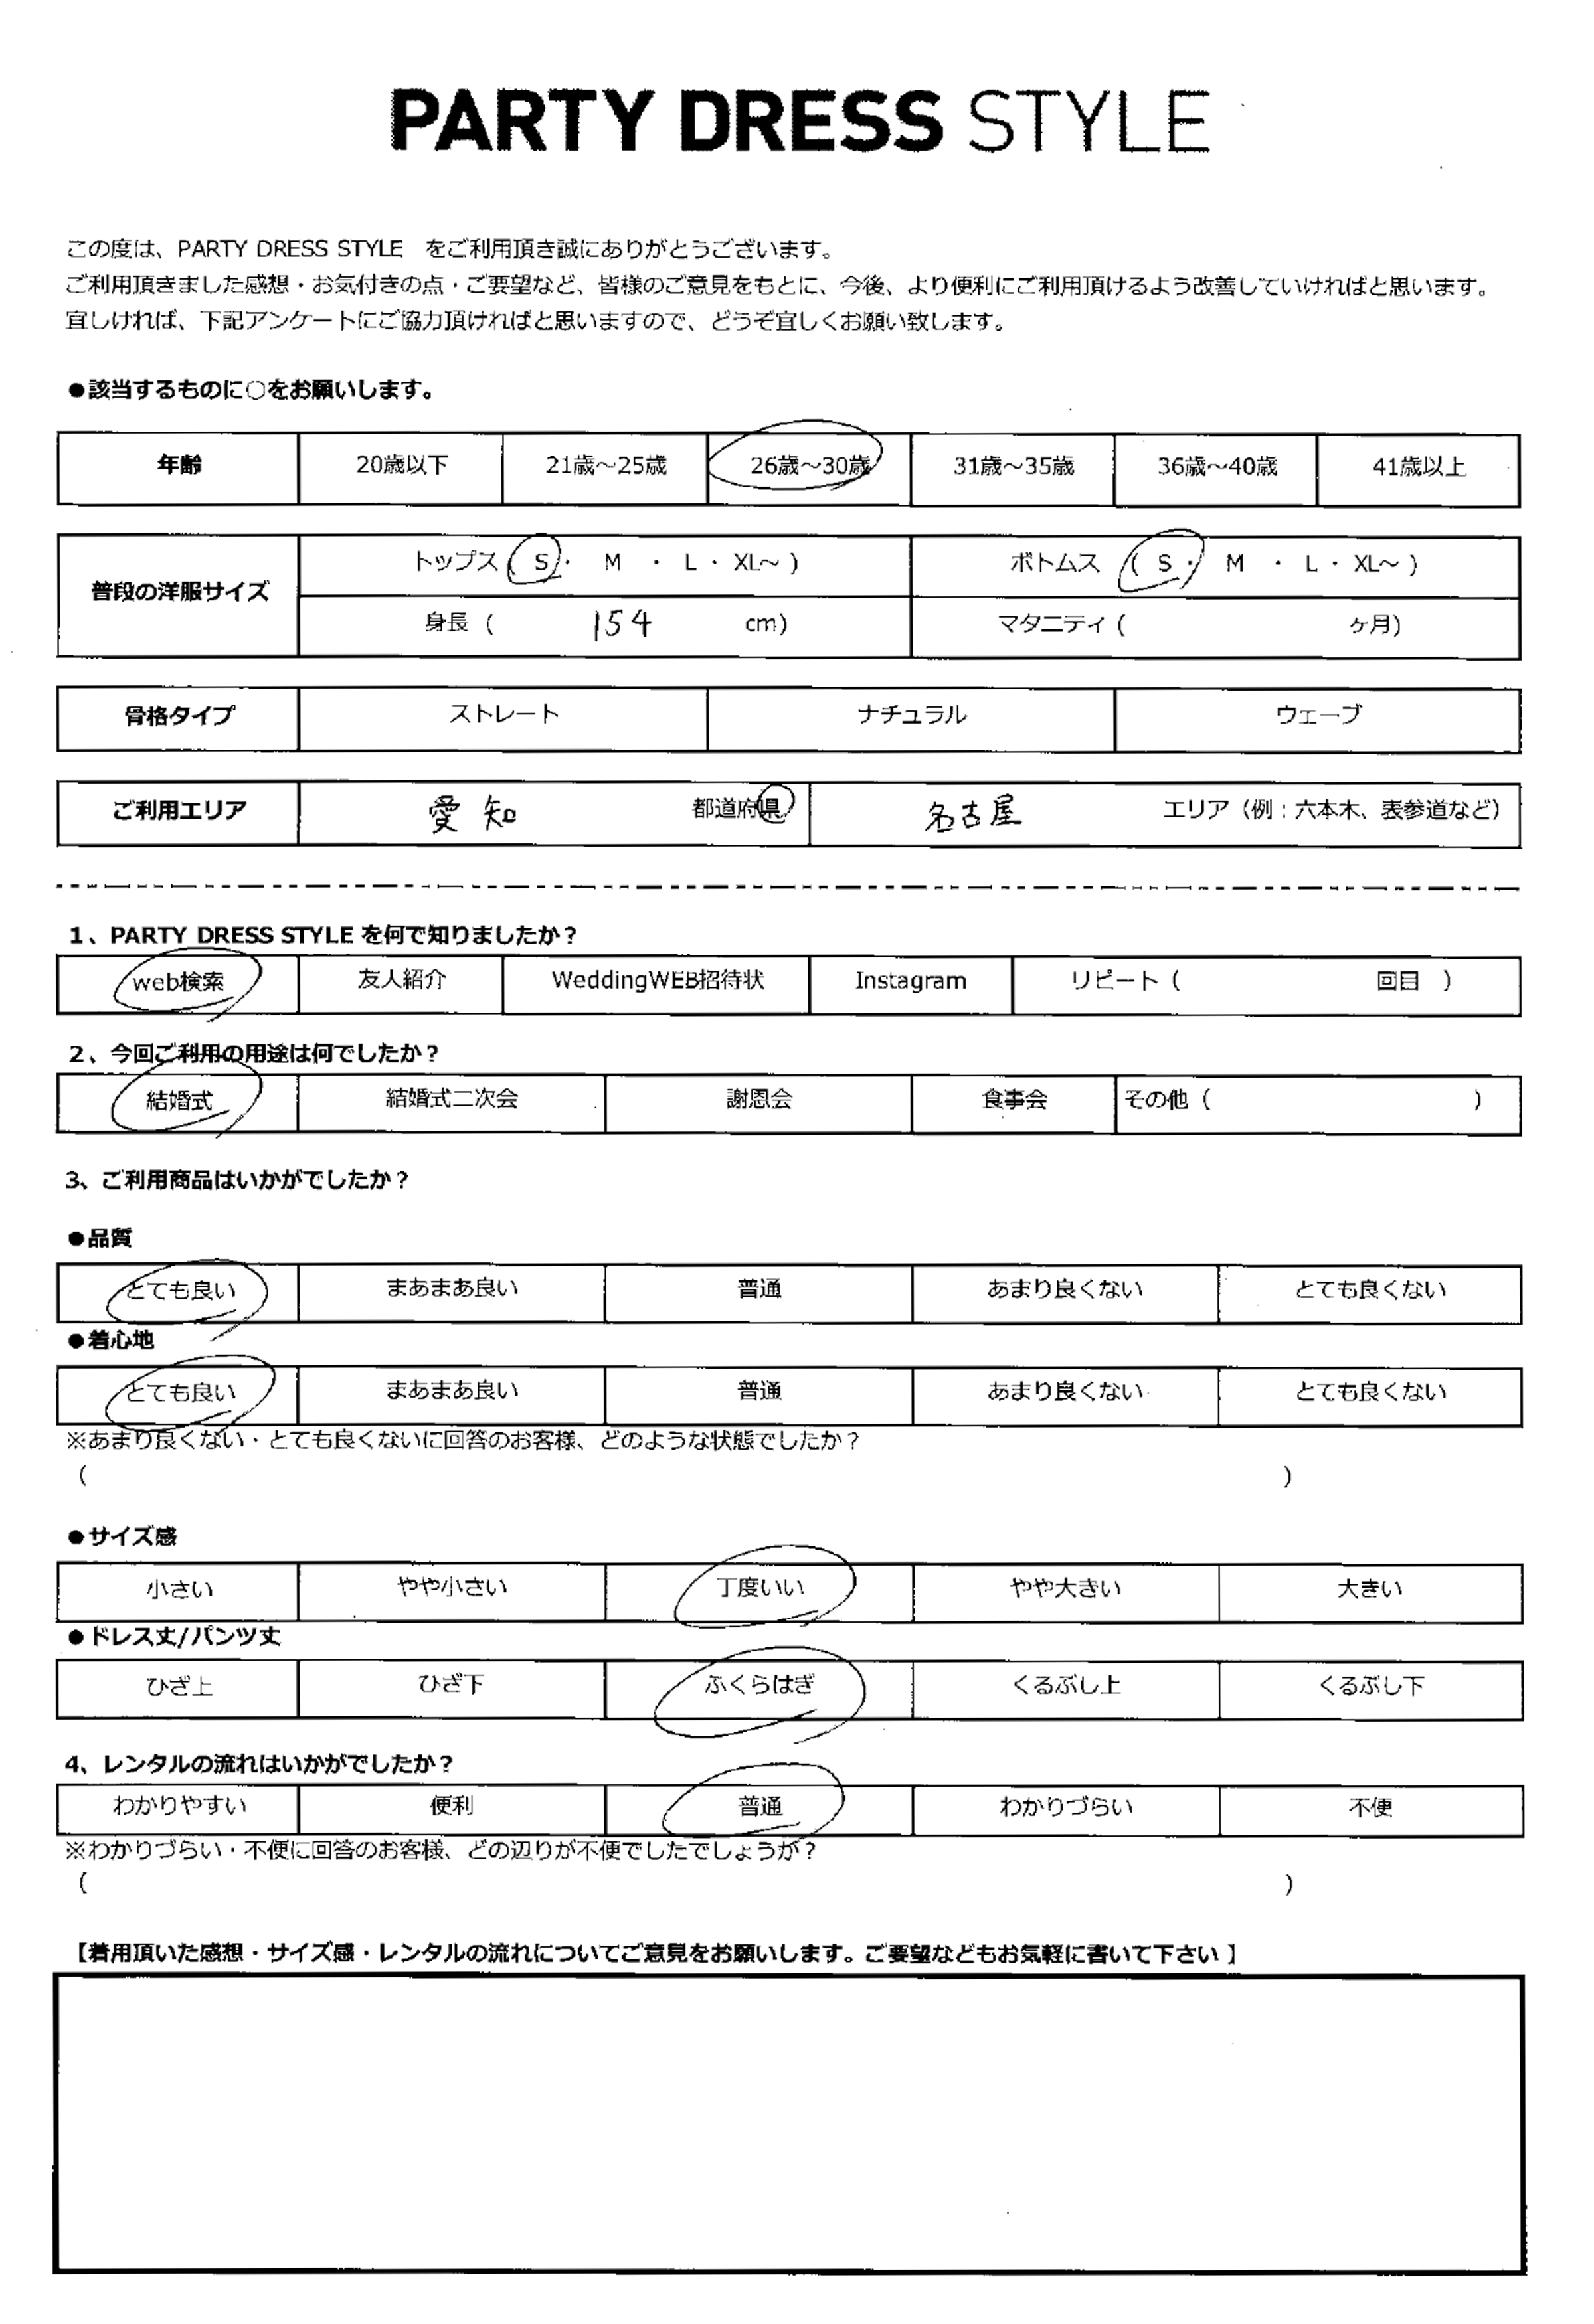 PARTY DRESS STYLE
この度は、PARTY DRESS STYLE をご利用頂き誠にありがとうございます。
ご利用頂きました感想・お気付きの点・ご要望など、皆様のご意見をもとに、今後、より便利にご利用頂けるよう改善していければと思います。
宜しければ、下記アンケートにご協力頂ければと思いますので、どうぞ宜しくお願い致します。
●該当するものに○をお願いします。
年齢 20歳以下 21歳～25歳 26歳～30歳 31歳～35歳 36歳～40歳 41歳以上
普段の洋服サイズ トップス ( S ・ M ・ L ・ XL～ ) ボトムス ( S ・ M ・ L ・ XL～ )
身長 ( 154 cm) マタニティ ( ヶ月)
骨格タイプ ストレート ナチュラル ウェーブ
ご利用エリア 愛知 都道府県 名古屋 エリア（例：六本木、表参道など）
1、PARTY DRESS STYLE を何で知りましたか？
web検索 友人紹介 WeddingWEB招待状 Instagram リピート ( 回目 )
2、今回ご利用の用途は何でしたか？
結婚式 結婚式二次会 謝恩会 食事会 その他 ( )
3、ご利用商品はいかがでしたか？
●品質
とても良い まあまあ良い 普通 あまり良くない とても良くない
●着心地
とても良い まあまあ良い 普通 あまり良くない とても良くない
※あまり良くない・とても良くないに回答のお客様、どのような状態でしたか？
( )
●サイズ感
小さい やや小さい 丁度いい やや大きい 大きい
●ドレス丈/パンツ丈
ひざ上 ひざ下 ふくらはぎ くるぶし上 くるぶし下
4、レンタルの流れはいかがでしたか？
わかりやすい 便利 普通 わかりづらい 不便
※わかりづらい・不便に回答のお客様、どの辺りが不便でしたでしょうか？
( )
【着用頂いた感想・サイズ感・レンタルの流れについてご意見をお願いします。ご要望などもお気軽に書いて下さい】